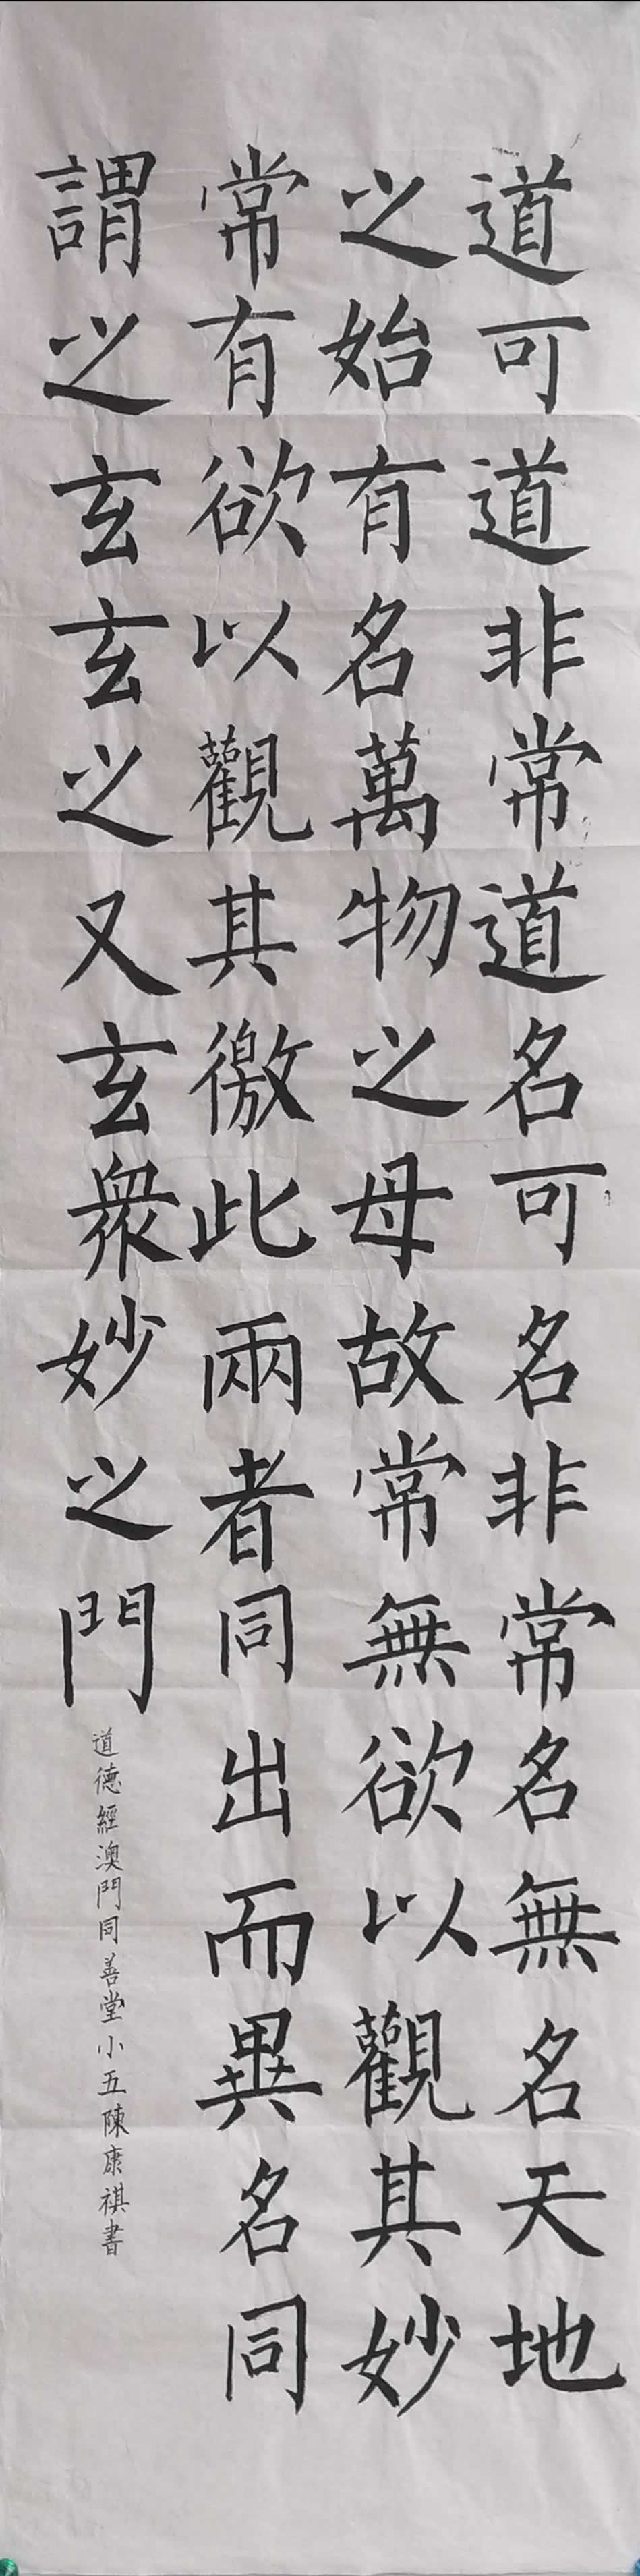 道可道非常道名可名非常名無名天地
之始有名萬物之母故常無欲以觀其妙
常有欲以觀其徼此兩者同出而異名同
謂之玄玄之又玄衆妙之門
道德經澳門同善堂小五陳康祺書